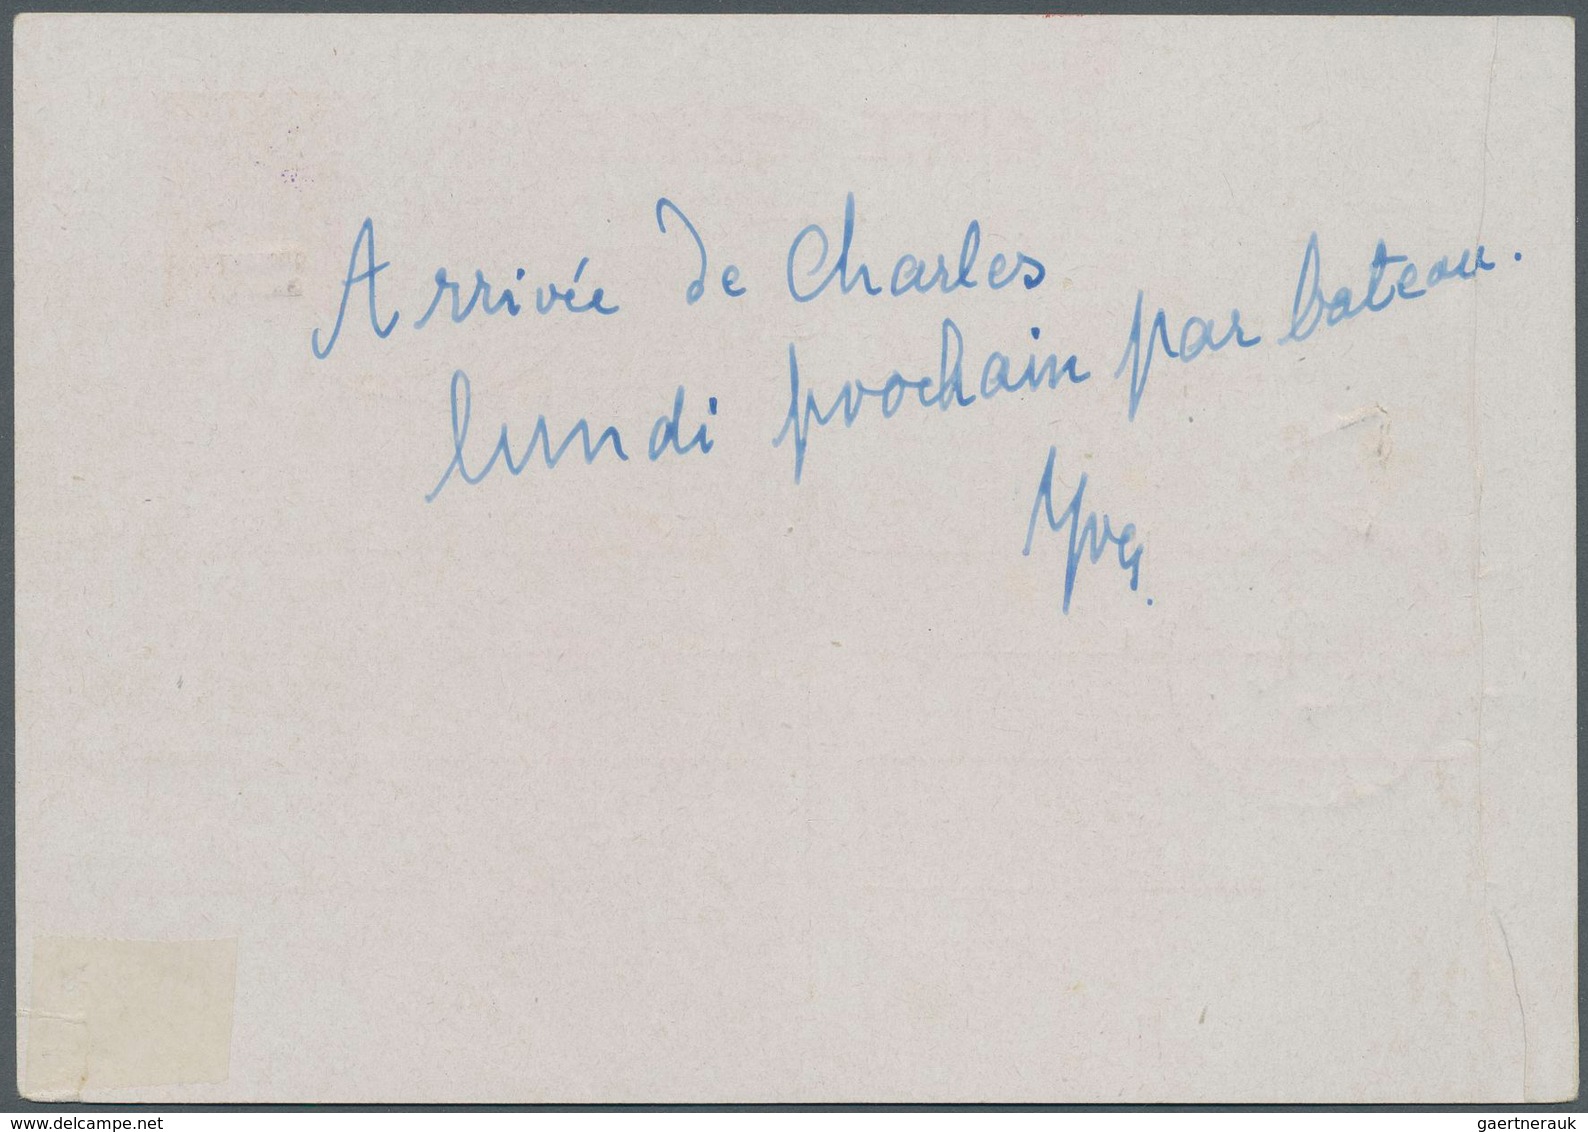 Arrivée de Charles
lundi prochain par bateau.
Yves.
gaertnerauk @ www.delcampe.net